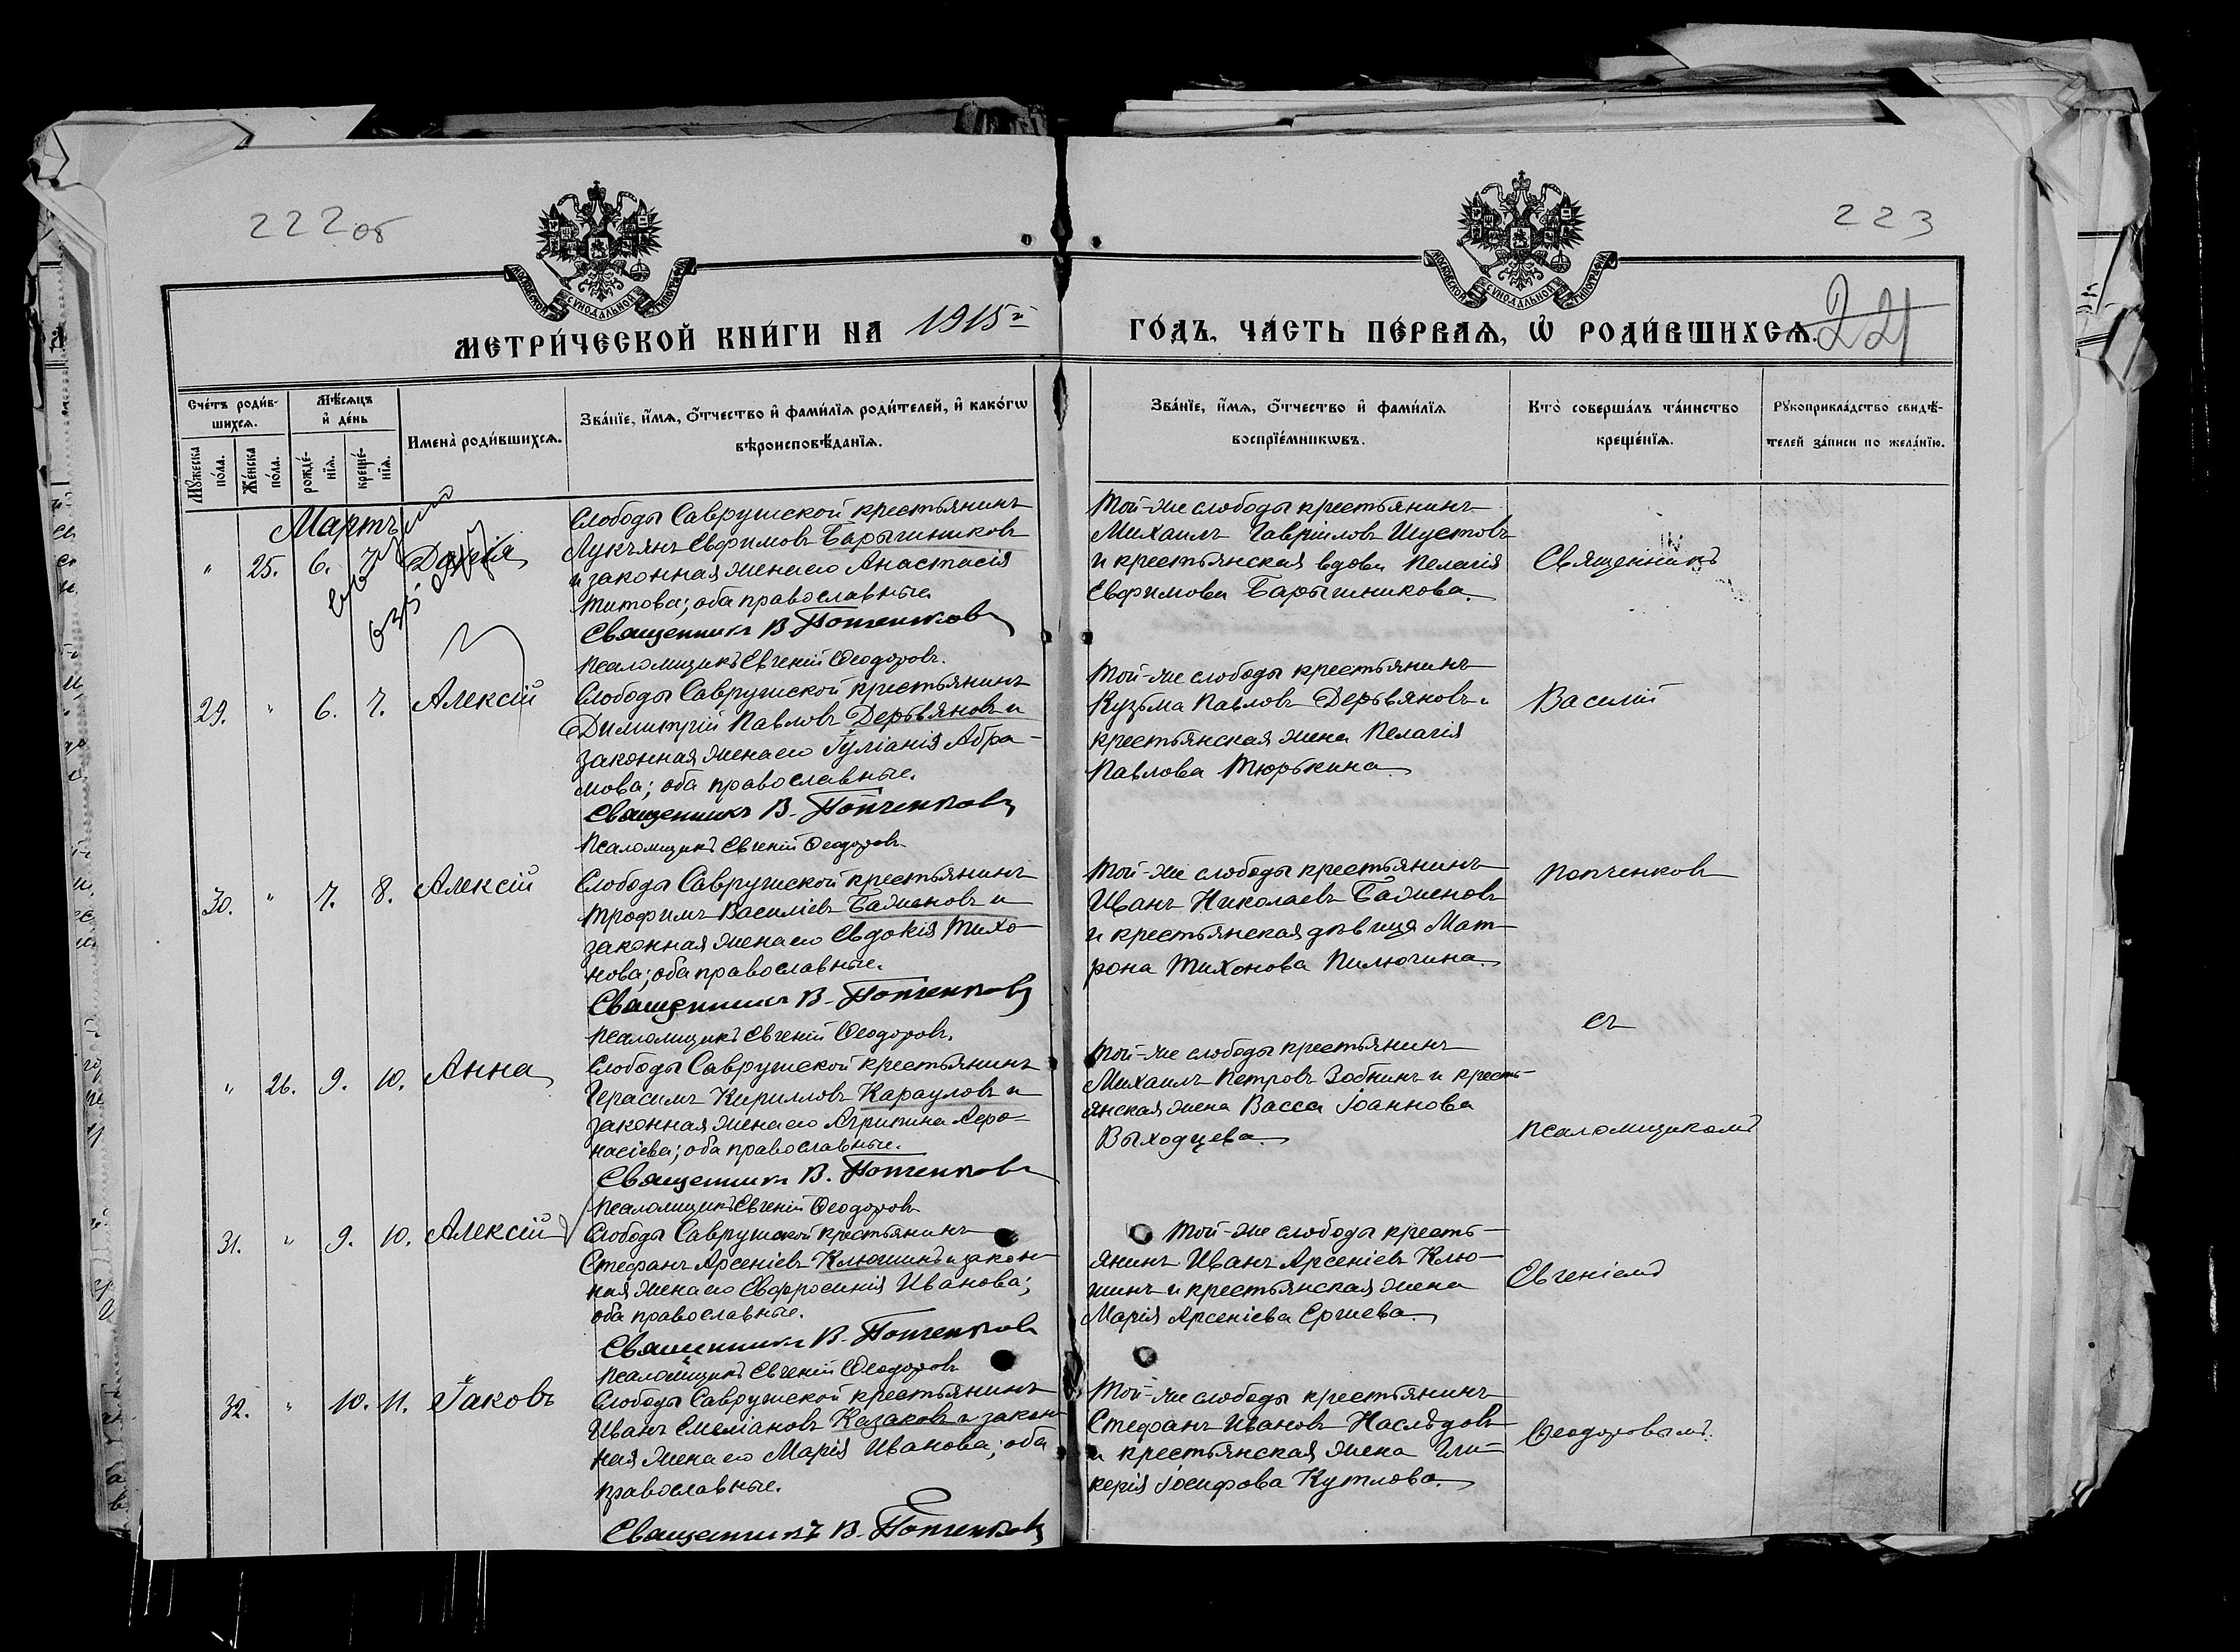 222 об
223
МОСКОВСКОЙ СУНОДАЛЬНОЙ ТИПОГРАФІИ
МОСКОВСКОЙ СУНОДАЛЬНОЙ ТИПОГРАФІИ
МЕТРИ́ЧЕСКОЙ КНИ́ГИ НА 1915й
ГО́ДЪ, ЧА́СТЬ ПЕ́РВАѦ, Ѡ҆ РОДИ́ВШИХСѦ.
221
Сче́тъ роди́в-
шихсѧ.
Мꙋ́жеска по́ла.
Же́нска по́ла.
Мѣ́сѧцъ
и҆ де́нь
рожде́-
нїѧ.
креще́-
нїѧ.
Имена̀ роди́вшихсѧ.
Зва́нїе, и҆́мѧ, ѻ҆́тчество и҆ фами́лїѧ роди́телей, и҆ како́гѡ
вѣроисповѣ́данїѧ.
Зва́нїе, и҆́мѧ, ѻ҆́тчество и҆ фами́лїѧ
воспрїе́мникѡвъ.
Кто̀ соверша́лъ та́инство
креще́нїѧ.
Рꙋкоприкла́дство свидѣ́-
телей за́писи по жела́нїю.
Мартъ
" 25. 6. 7. Дарія
Слободы Саврушской крестьянинъ
Лукъянъ Евфимовъ Барышниковъ
и законная жена его Анастасія
Титова; оба православные.
Священникъ В. Попченковъ
Псаломщикъ Евгеній Ѳеодоровъ.
Той-же слободы крестьянинъ
Михаилъ Гавріиловъ Шустовъ
и крестьянская вдова Пелагія
Евфимова Барышникова.
Священникъ
29. " 6. 7. Алексій
Слободы Саврушской крестьянинъ
Димитрій Павловъ Деревяновъ и
законная жена его Іуліанія Абра-
мова; оба православные.
Священникъ В. Попченковъ
Псаломщикъ Евгеній Ѳеодоровъ
Той-же слободы крестьянинъ
Кузьма Павловъ Деревяновъ и
крестьянская жена Пелагія
Павлова Тюрькина.
Василій
30. " 7. 8. Алексій
Слободы Саврушской крестьянинъ
Трофимъ Василіевъ Баженовъ и
законная жена его Евдокія Тихо-
нова; оба православные.
Священникъ В. Попченковъ
Псаломщикъ Евгеній Ѳеодоровъ.
Той-же слободы крестьянинъ
Иванъ Николаевъ Баженовъ
и крестьянская дѣвица Мат-
рона Тихонова Пилюгина.
Попченковъ
съ
" 26. 9. 10. Анна
Слободы Саврушской крестьянинъ
Герасимъ Кирилловъ Карауловъ и
законная жена его Агрипина Афа-
насіева; оба православные.
Священникъ В. Попченковъ
Псаломщикъ Евгеній Ѳеодоровъ
Той-же слободы крестьянинъ
Михаилъ Петровъ Зобнинъ и кресть-
янская жена Васса Іоаннова
Выходцева.
псаломщикомъ
31. " 9. 10. Алексій
Слободы Саврушской крестьянинъ
Стефанъ Арсеніевъ Клюшинъ и закон-
ная жена его Евфросинія Иванова;
оба православные.
Священникъ В. Попченковъ
Псаломщикъ Евгеній Ѳеодоровъ
Той-же слободы кресть-
янинъ Иванъ Арсеніевъ Клю-
шинъ и крестьянская жена
Марія Арсеніева Ершева.
Евгеніемъ
32. " 10. 11. Іаковъ
Слободы Саврушской крестьянинъ
Иванъ Емеліановъ Казаковъ и закон-
ная жена его Марія Иванова; оба
православные.
Священникъ В. Попченковъ
Той-же слободы крестьянинъ
Стефанъ Ивановъ Наслѣдовъ
и крестьянская жена Гли-
керія Іосифова Кутлова.
Ѳеодоровымъ.